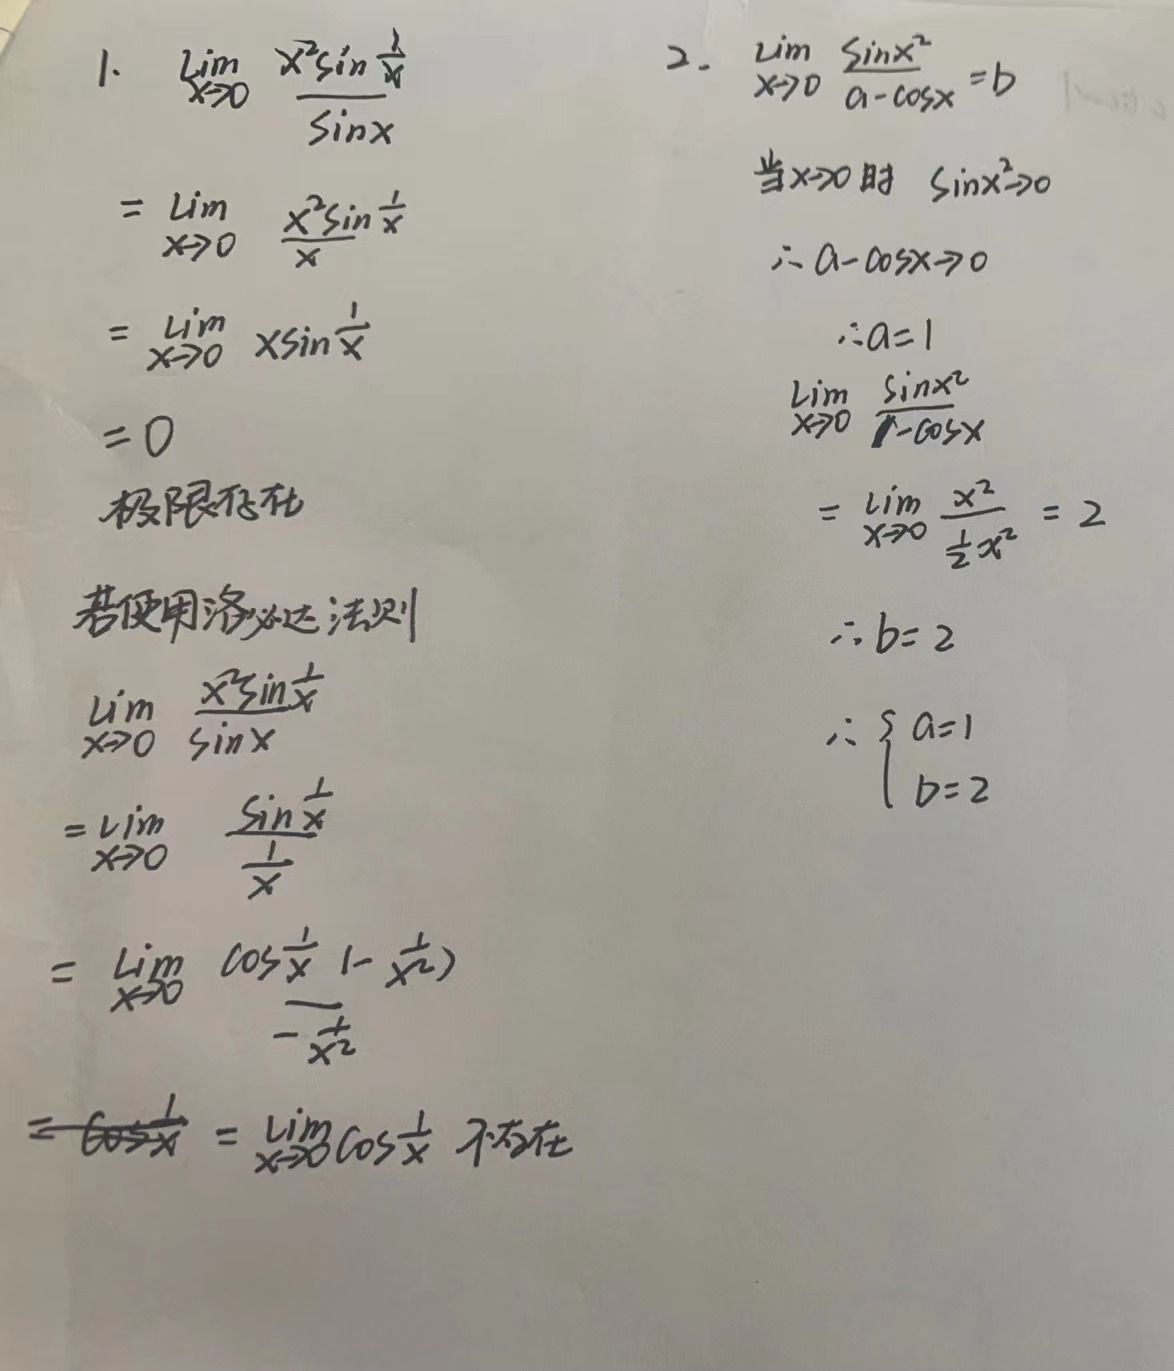 1. lim x→0 x²sin 1/x / sinx
= lim x→0 x²sin 1/x / x
= lim x→0 xsin 1/x
= 0
极限存在
若使用洛必达法则
lim x→0 x²sin 1/x / sinx
= lim x→0 sin 1/x / 1/x
= lim x→0 cos 1/x (- 1/x²) / - 1/x²
= cos 1/x = lim x→0 cos 1/x 不存在
2. lim x→0 sinx² / a-cosx = b
当x→0时 sinx²→0
∴ a-cosx→0
∴a=1
lim x→0 sinx² / 1-cosx
= lim x→0 x² / ½x² = 2
∴ b=2
∴ { a=1
b=2